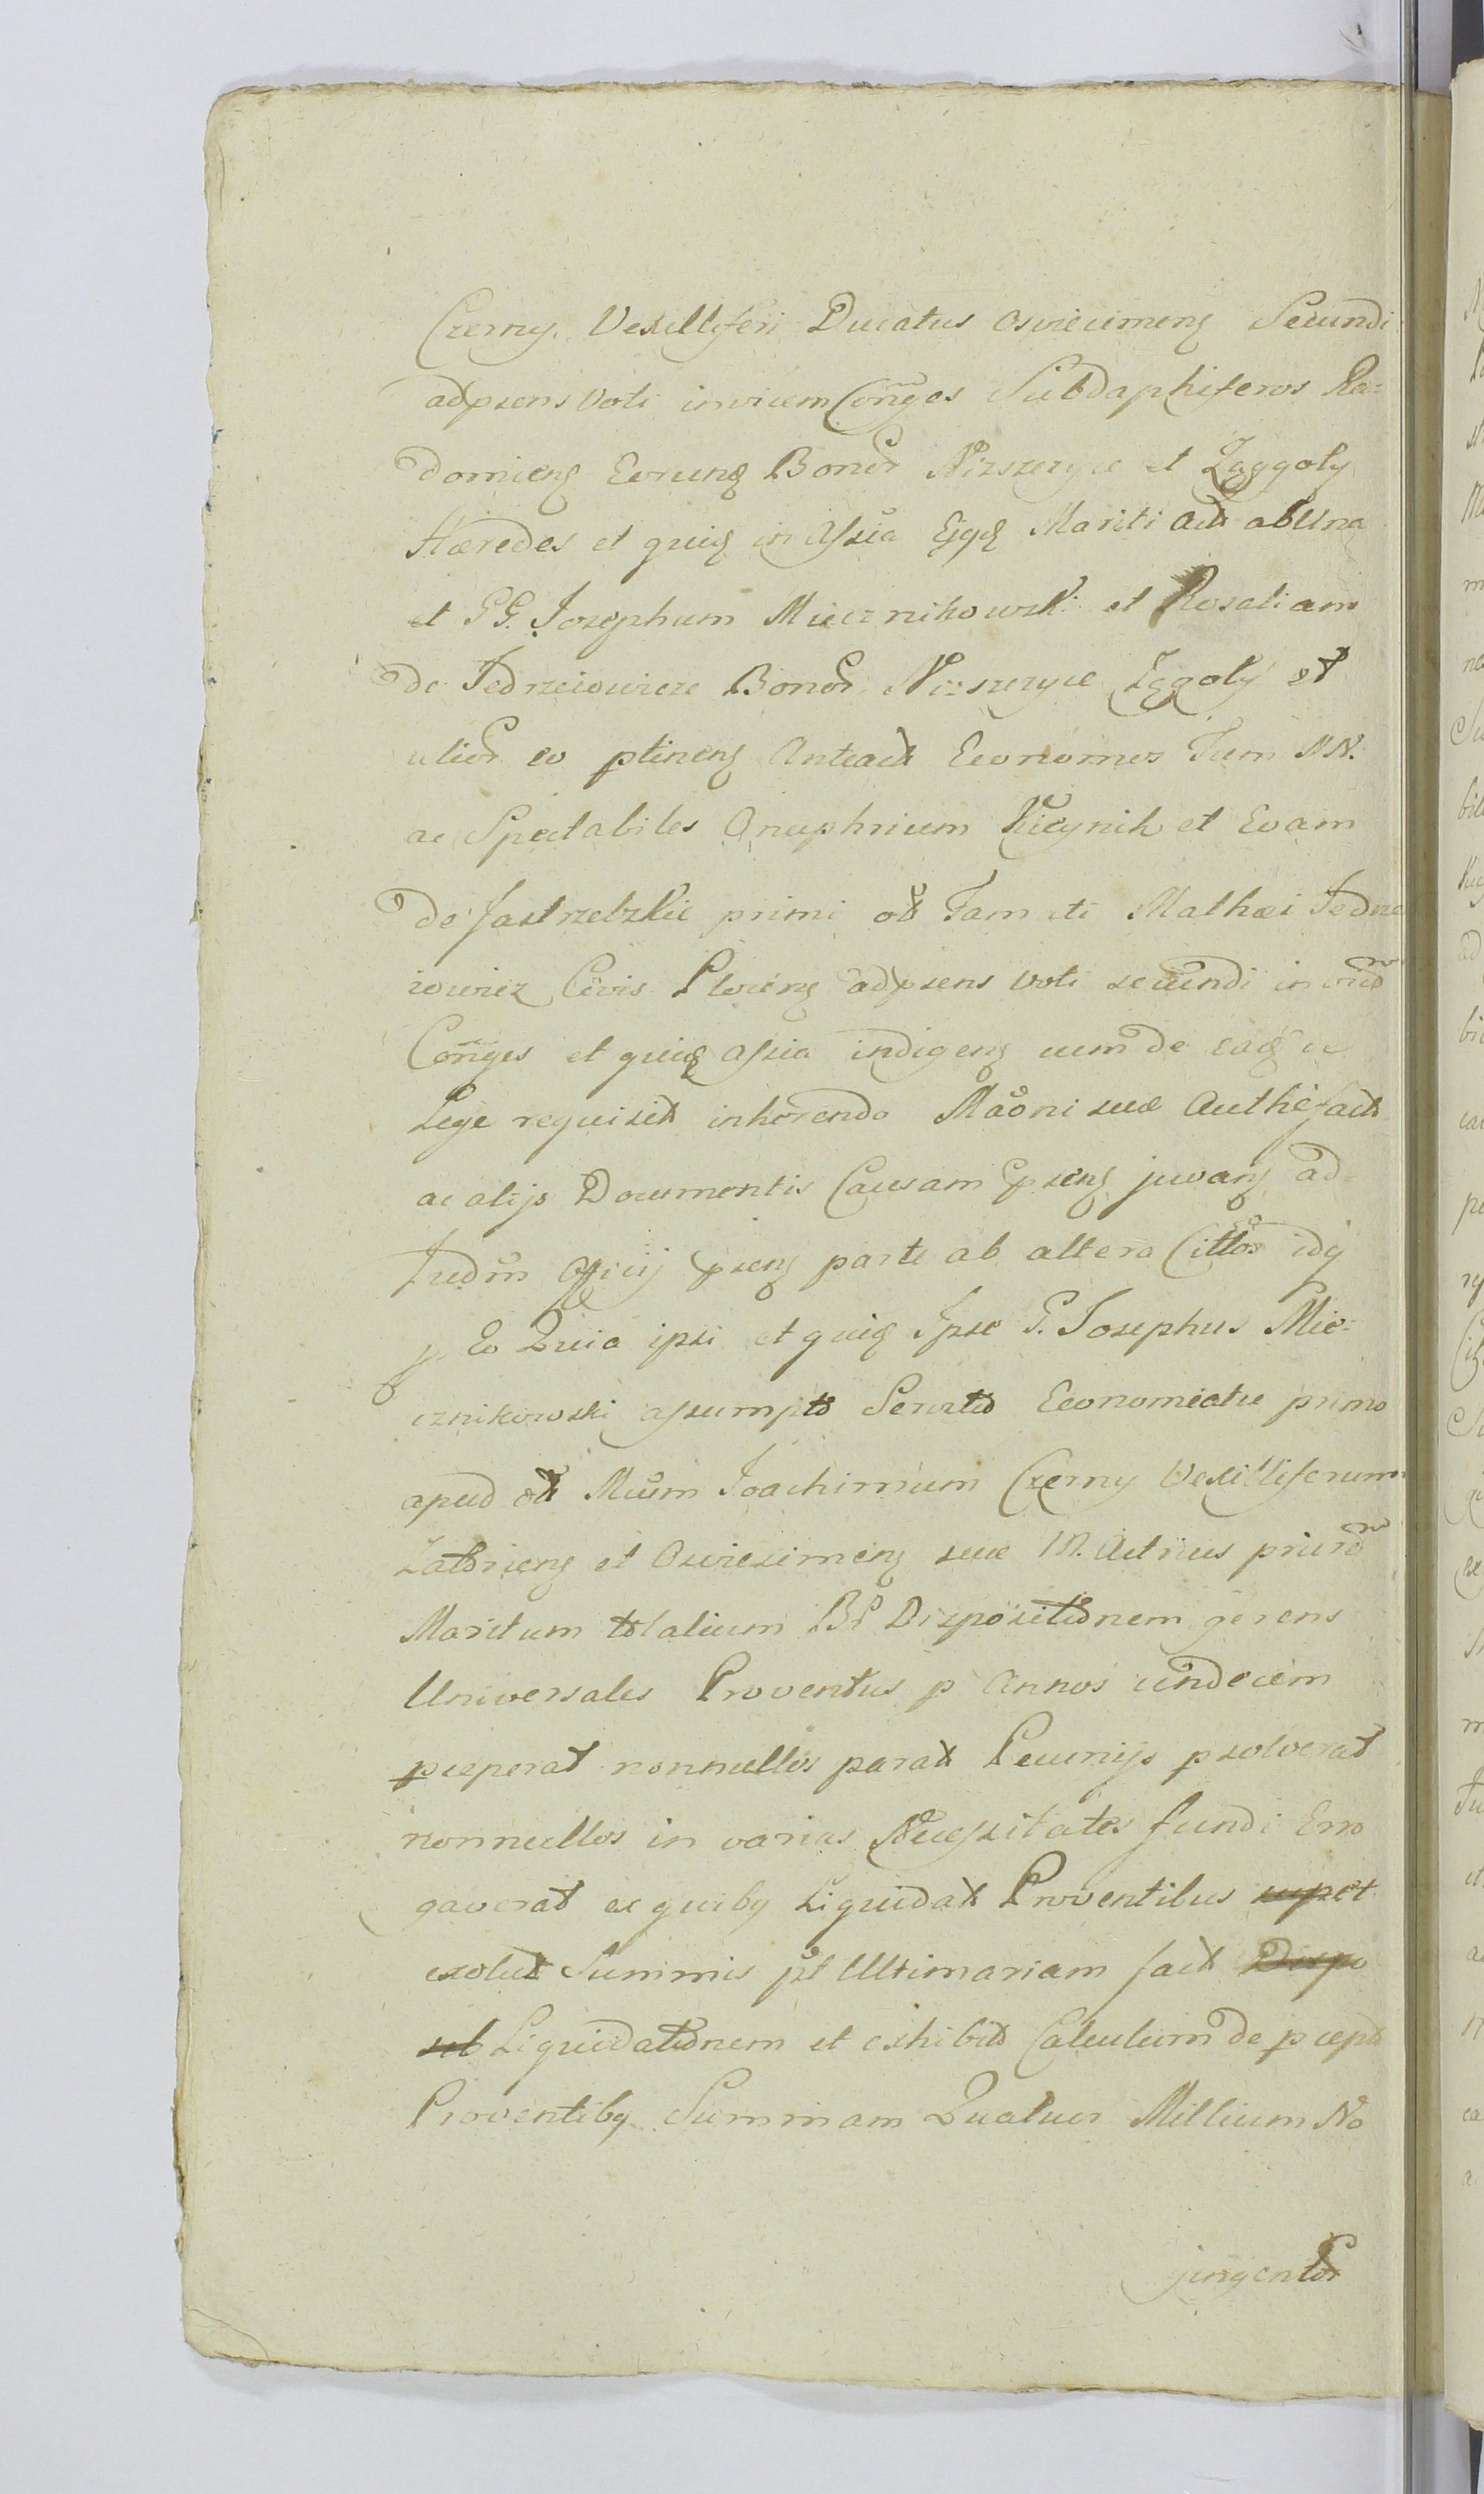 Czerny. Vexilliferi Ducatus Osviecimenς Secundi
adpsens Voti invicem Coñges Subdaphiferos Ra=
domienς Eorunq̃ Bonor Niszczyce et Zągqoty
Hæredes et quiq̃ in Assia Ejqq̃ Mariti act̃ ab Una
et GG. Josephum Miecznikowski et Rosaliam
de Jedrzeiowicze Bonor Niszczyce Zęgoty et
ulior eo ptinenς Anteact̃ Economos Tum NN.
ac Spectabiles Onuphrium Kicynik et Evam
de Jastrzebskie primi ol̃ Famati Mathæi Jedrze
iowicz Civis Plocenς adpsens Voti secundi invic̃
Coñges et quiq̃ assia indigenς cum de eaq̃ ac
Lege requisit̃ inhœrendo Maõni suæ Authẽ fact̃
ac alijs Documentis Causam psenς juvanς ad
Judm̃ Officij psenς parte ab altera Cittos idq̃
p Eo Quia ipsi et quiq̃ Ipse G. Josephus Mie=
cznikowski assumpto Servitio Economiatu primo
apud ol̃ Mcum Joachimum Czerny Vexilliferum
Zatorienς et Osviecimenς suæ M. Actricis prior̃
Maritum totalium BP Dispositionem gerens
Universales Proventus p Annos undecim
pceperat nonnullos parat̃ Pecunijs psolverat
nonnullos in varias Necessitates fundi Erro
gaverat ex quibq Liquidat̃ Proventibus supet
exolut̃ Summis pt Ultimariam fact̃ Dispo
sit Liquidationem et exhibit̃ Calculum de pcept̃
Proventibq Summam Quatuor Millium No
jingentor